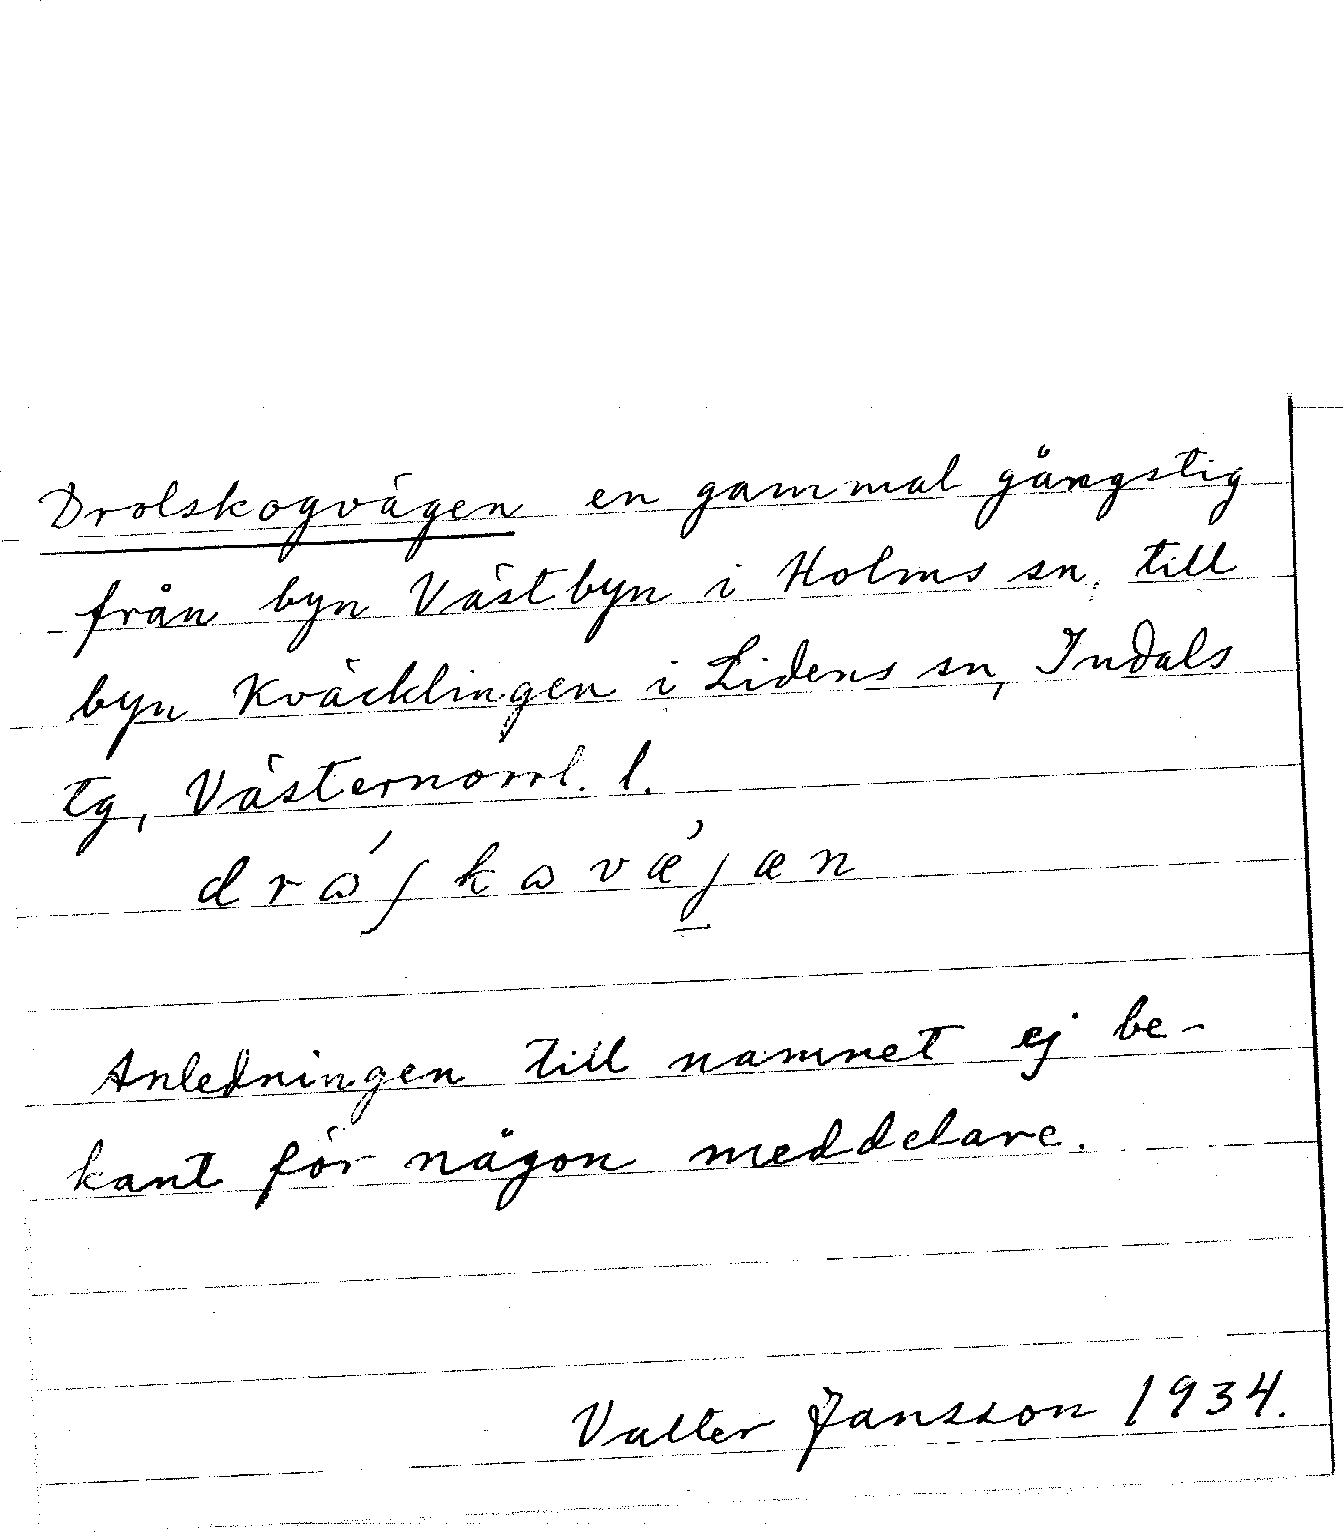 Drolskogvägen en gammal gångstig
från byn Västbyn i Holms sn. till
byn Kväcklingen i Lidens sn, Indals
tg, Västernorrl. l.
drɷ́ʃkɷvæ̀jæn
Anledningen till namnet ej be-
kant för någon meddelare.
Valter Jansson 1934.